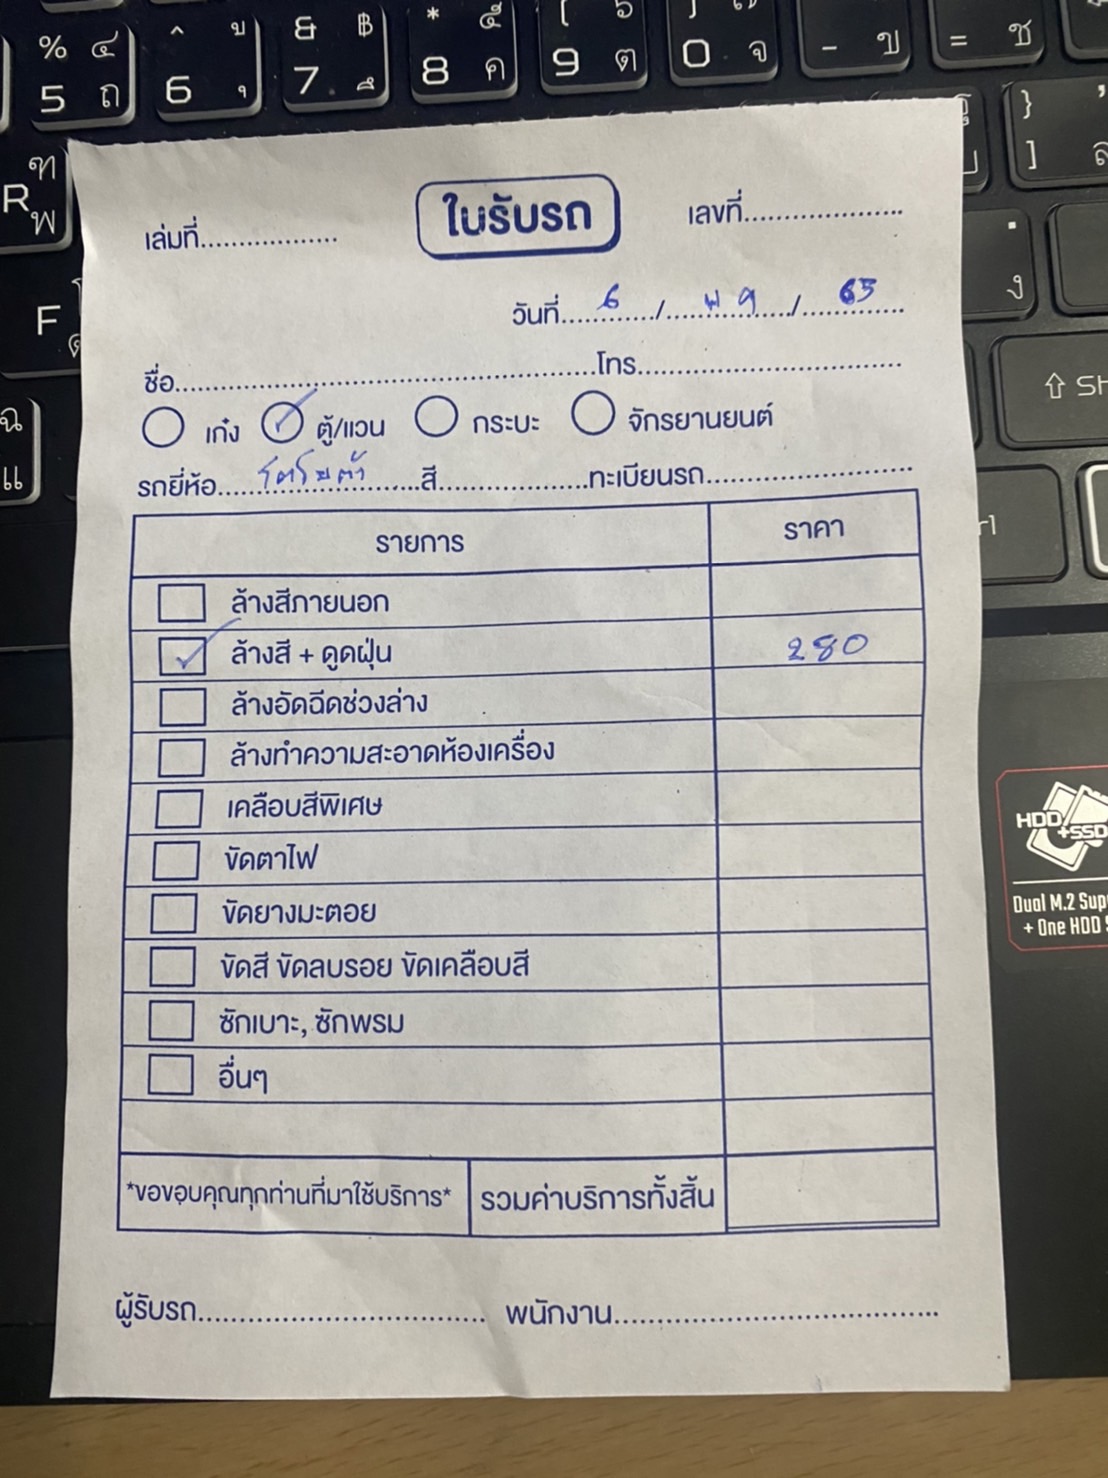 % ๔ ^ ู & ฿ * ๕ ( ๖ ) ๗
5 ถ 6 ุ 7 ึ 8 ค 9 ต 0 จ - ข = ช
R ฑ พ
} ]
F
ฉ
แ
ง
ใบรับรถ
เล่มที่.................. เลขที่.....................
วันที่ 6 / พ ย / 65
ชื่อ..................................................โทร.................................
เก๋ง ตู้/แวน กระบะ จักรยานยนต์
รถยี่ห้อ โตโยต้า สี....................ทะเบียนรถ...........................
รายการ ราคา
ล้างสีภายนอก
ล้างสี + ดูดฝุ่น 280
ล้างอัดฉีดช่วงล่าง
ล้างทำความสะอาดห้องเครื่อง
เคลือบสีพิเศษ
ขัดตาไฟ
ขัดยางมะตอย
ขัดสี ขัดลบรอย ขัดเคลือบสี
ซักเบาะ, ซักพรม
อื่นๆ
*ขอขอบคุณทุกท่านที่มาใช้บริการ* รวมค่าบริการทั้งสิ้น
ผู้รับรถ.................................. พนักงาน......................................
HDD
+SSD
Dual M.2
+ One HDD